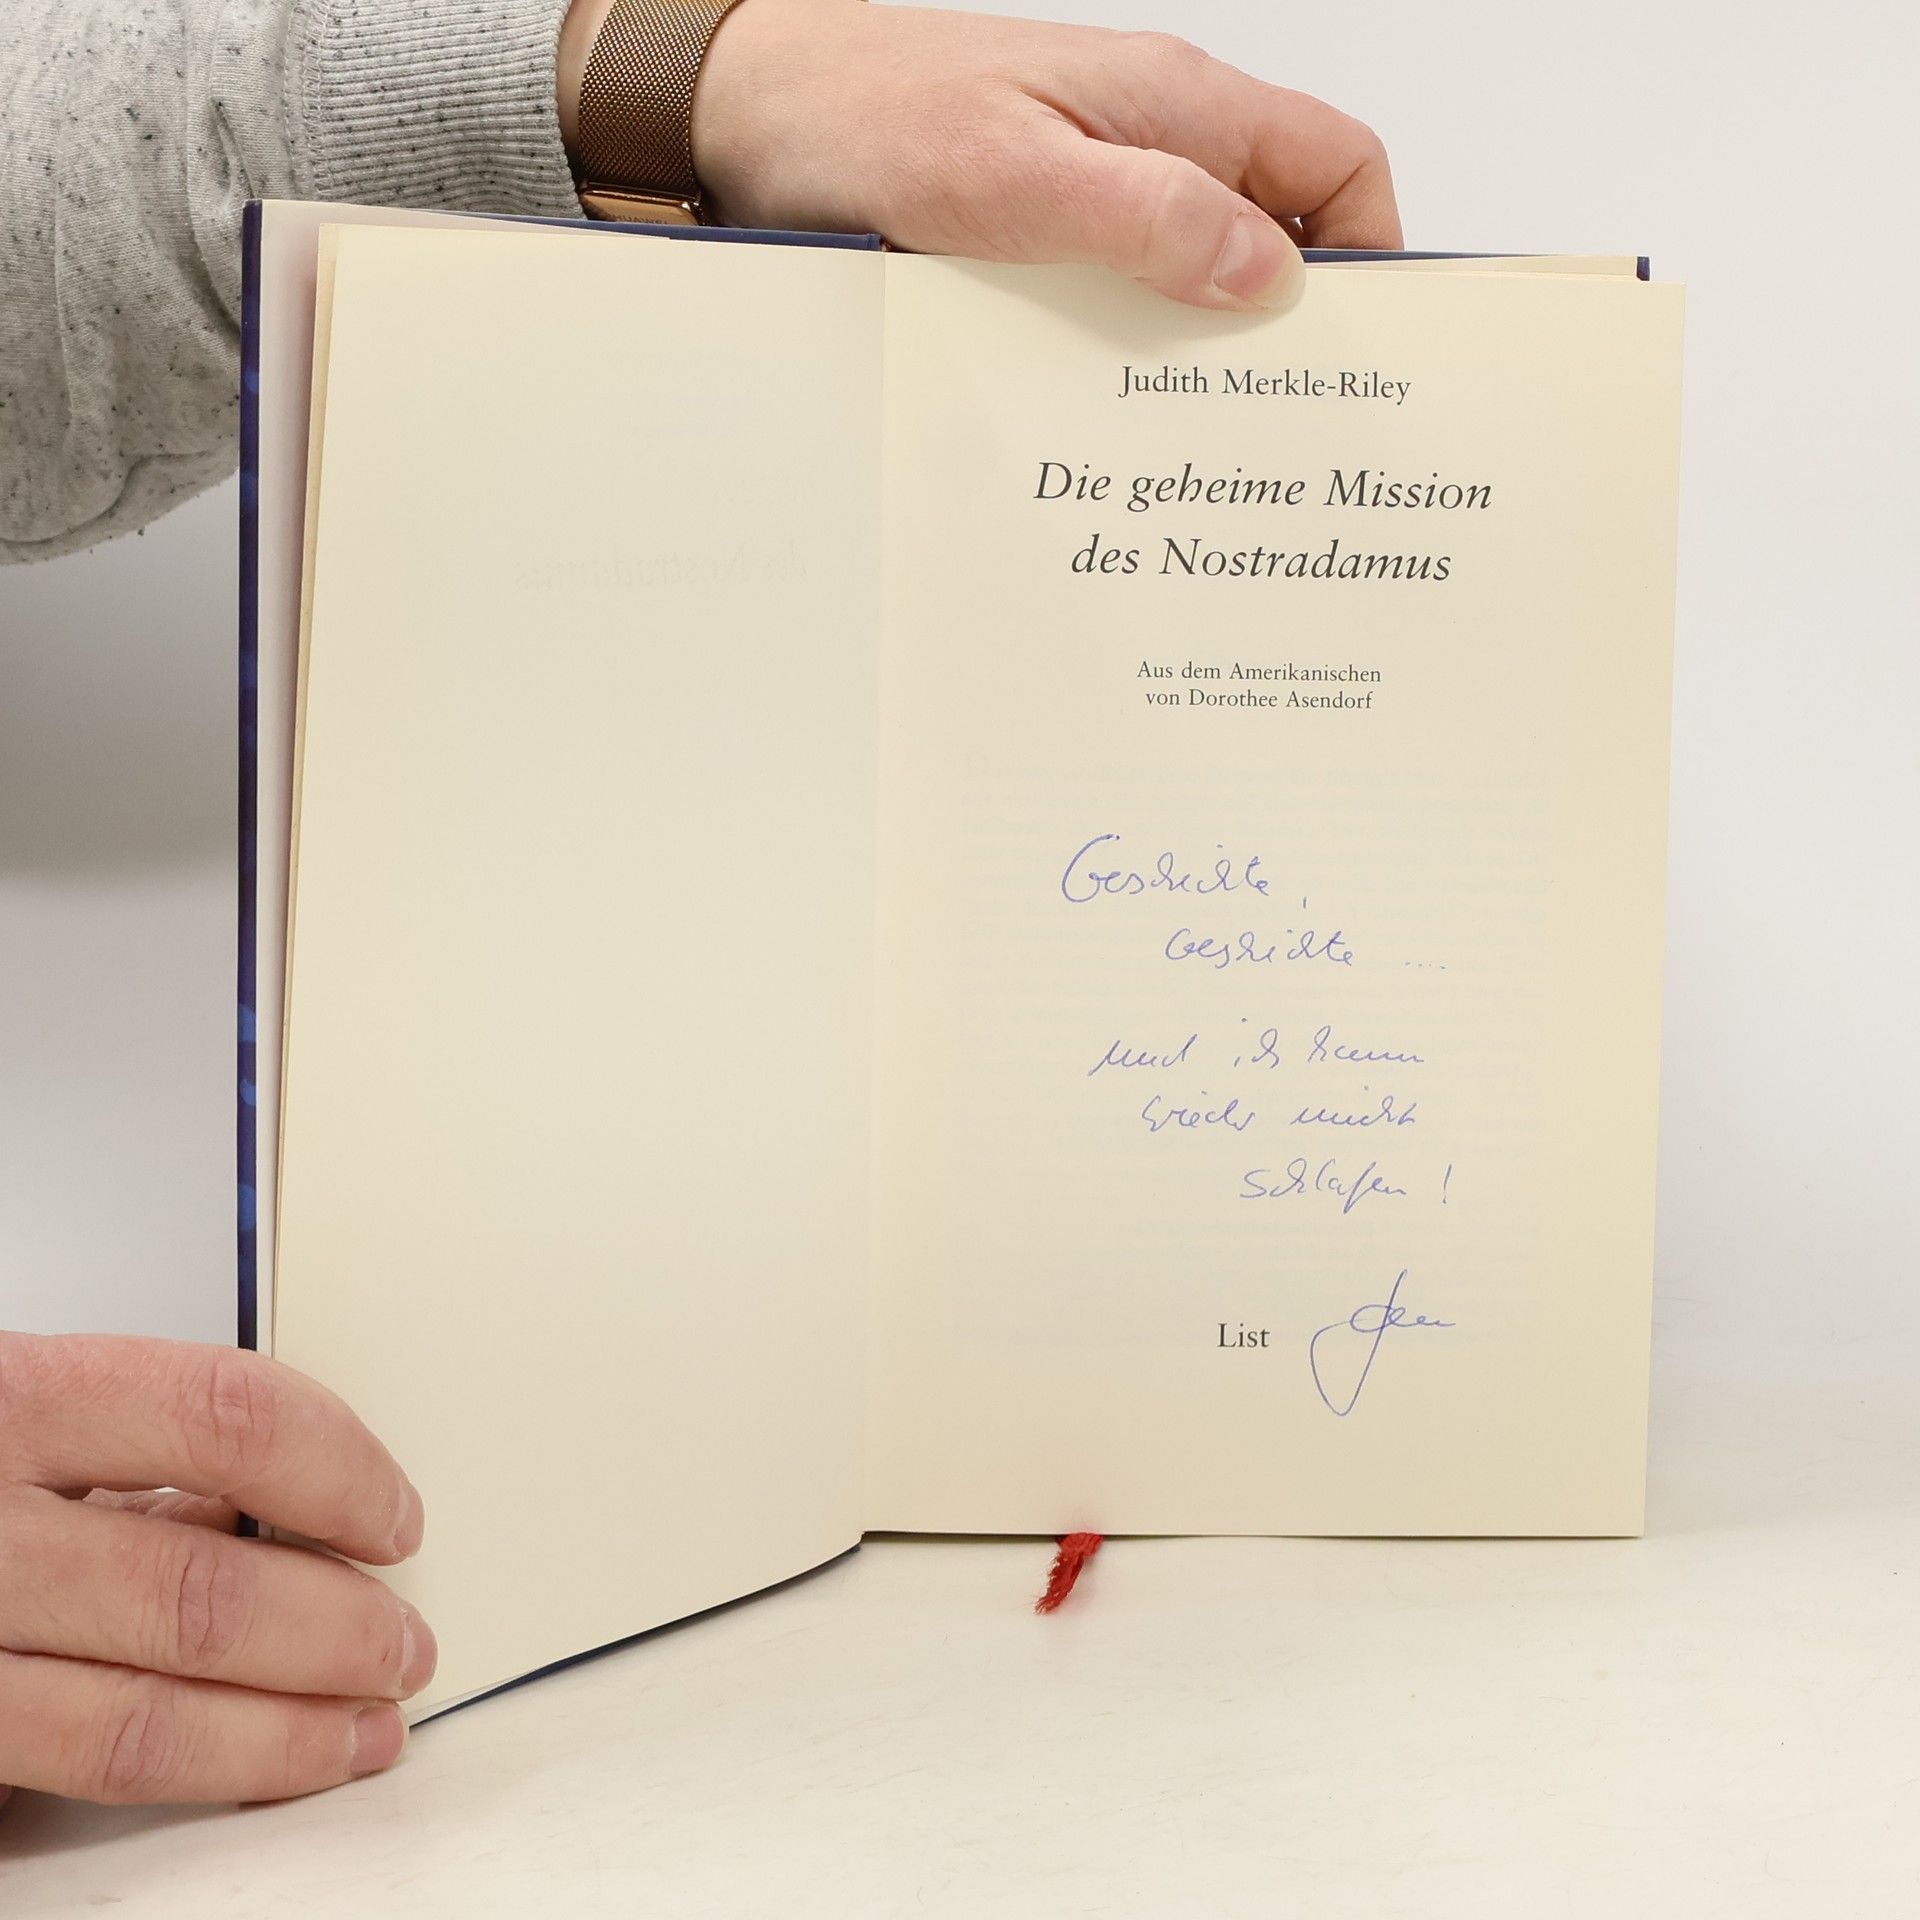 HUAWEI
Judith Merkle-Riley
Die geheime Mission
des Nostradamus
Aus dem Amerikanischen
von Dorothee Asendorf
Geschichte,
Geschichte ....
und ich kann
wieder nicht
schlafen !
List